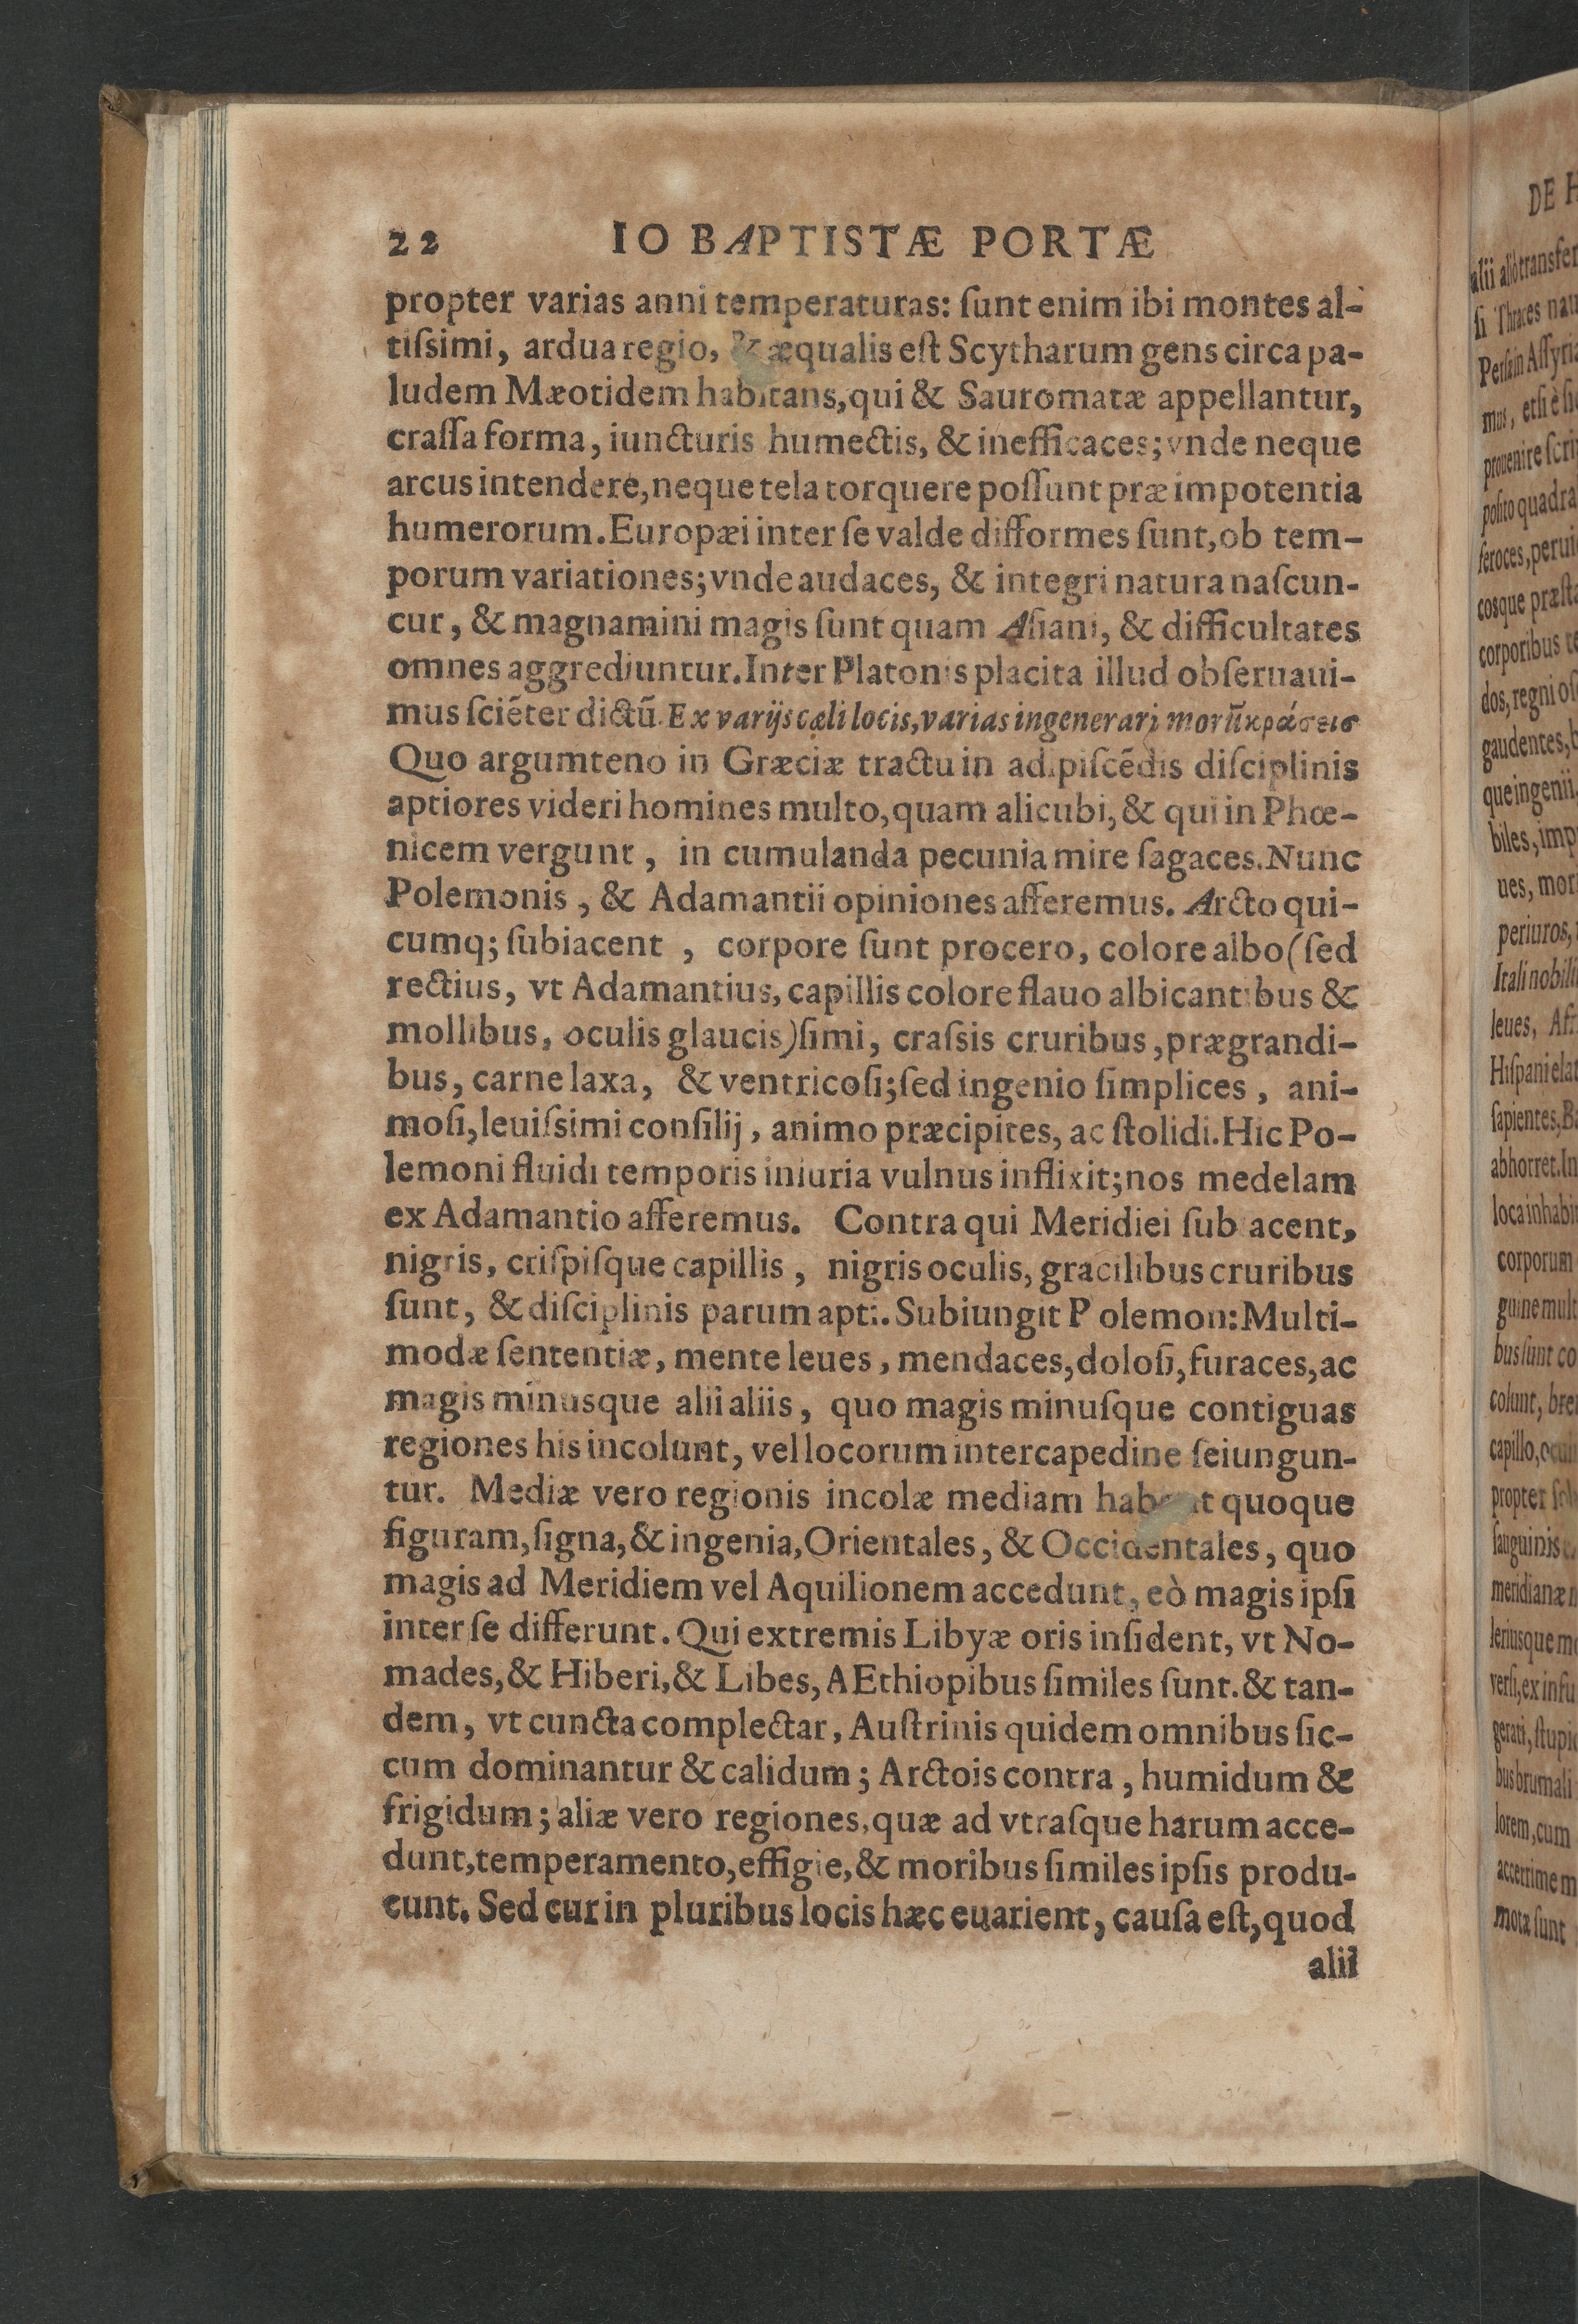 22 IO BAPTISTÆ PORTÆ
propter varias anni temperaturas: ſunt enim ibi montes al-
tiſsimi, ardua regio, & æqualis eſt Scytharum gens circa pa-
ludem Mæotidem habitans, qui & Sauromatæ appellantur,
craſſa forma, iuncturis humectis, & inefficaces; vnde neque
arcus intendere, neque tela torquere poſſunt præ impotentia
humerorum. Europæi inter ſe valde difformes ſunt, ob tem-
porum variationes; vnde audaces, & integri natura naſcun-
cur, & magnamini magis ſunt quam Aſiani, & difficultates
omnes aggrediuntur. Inter Platonis placita illud obſeruaui-
mus ſciēter dictū. Ex varijs cæli locis, varias ingenerari morū κράσεισ
Quo argumteno in Græciæ tractu in adipiſcēdis diſciplinis
aptiores videri homines multo, quam alicubi, & qui in Phœ-
nicem vergunt, in cumulanda pecunia mire ſagaces. Nunc
Polemonis, & Adamantii opiniones afferemus. Arcto qui-
cumq; ſubiacent, corpore ſunt procero, colore albo (ſed
rectius, vt Adamantius, capillis colore flauo albicantibus &
mollibus, oculis glaucis) ſimi, craſsis cruribus, prægrandi-
bus, carne laxa, & ventricoſi; ſed ingenio ſimplices, ani-
moſi, leuiſsimi conſilij, animo præcipites, ac ſtolidi. Hic Po-
lemoni fluidi temporis iniuria vulnus inflixit; nos medelam
ex Adamantio afferemus. Contra qui Meridiei ſubiacent,
nigris, criſpiſque capillis, nigris oculis, gracilibus cruribus
ſunt, & diſciplinis parum apti. Subiungit P olemon: Multi-
modæ ſententiæ, mente leues, mendaces, doloſi, furaces, ac
magis minusque alii aliis, quo magis minuſque contiguas
regiones his incolunt, vel locorum intercapedine ſeiungun-
tur. Mediæ vero regionis incolæ mediam habent quoque
figuram, ſigna, & ingenia, Orientales, & Occidentales, quo
magis ad Meridiem vel Aquilionem accedunt, eò magis ipſi
inter ſe differunt. Qui extremis Libyæ oris inſident, vt No-
mades, & Hiberi, & Libes, AEthiopibus ſimiles ſunt. & tan-
dem, vt cuncta complectar, Auſtrinis quidem omnibus ſic-
cum dominantur & calidum; Arctois contra, humidum &
frigidum; aliæ vero regiones, quæ ad vtraſque harum acce-
dunt, temperamento, effigie, & moribus ſimiles ipſis produ-
cunt. Sed cur in pluribus locis hæc euarient, cauſa eſt, quod
alii
DE
alii aliò transfer
ſi Thraces nau
mus,
feroces,
coſque præſta
corporibus
dos, regni
gaudentes,
que ingenii,
biles,
ues, mor
periuros,
Itali nobili
leues,
Hiſpani
ſapientes,
abhorret. In
loca inhabi
corporum
guine mult
bus ſunt co
colunt,
capillo,
propter
ſanguinis
meridianæ
gerati,
bus brumali
lorem, cum
mota ſunt